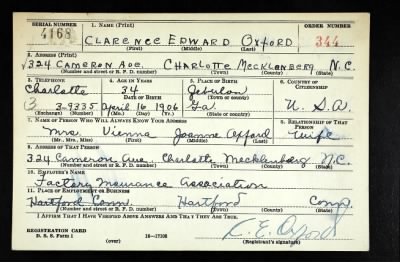 SERIAL NUMBER 1. NAME (Print) ORDER NUMBER
4168 CLARENCE EDWARD OXFORD 344
(First) (Middle) (Last)
2. ADDRESS (Print)
324 CAMERON AVE. CHARLOTTE MECKLENBERG N.C.
(Number and street or R. F. D. number) (Town) (County) (State)
3. TELEPHONE 4. AGE IN YEARS 5. PLACE OF BIRTH 6. COUNTRY OF CITIZENSHIP
Charlotte 34 Zebulon
DATE OF BIRTH (Town or county)
3-9335 April 16 1906 Ga U. S. A.
(Exchange) (Number) (Mo.) (Day) (Yr.) (State or country)
7. NAME OF PERSON WHO WILL ALWAYS KNOW YOUR ADDRESS 8. RELATIONSHIP OF THAT PERSON
Mrs. Vienna Joanne Oxford Wife
(Mr., Mrs., Miss) (First) (Middle) (Last)
9. ADDRESS OF THAT PERSON
324 Cameron Ave. Charlotte Mecklenberg N.C.
(Number and street or R. F. D. number) (Town) (County) (State)
10. EMPLOYER'S NAME
Factory Insurance Association
11. PLACE OF EMPLOYMENT OR BUSINESS
Hartford Conn. Hartford Conn.
(Number and street or R. F. D. number) (Town) (County) (State)
I AFFIRM THAT I HAVE VERIFIED ABOVE ANSWERS AND THAT THEY ARE TRUE.
C. E. Oxford
REGISTRATION CARD
D. S. S. Form 1 (over) 16—17105 (Registrant's signature)